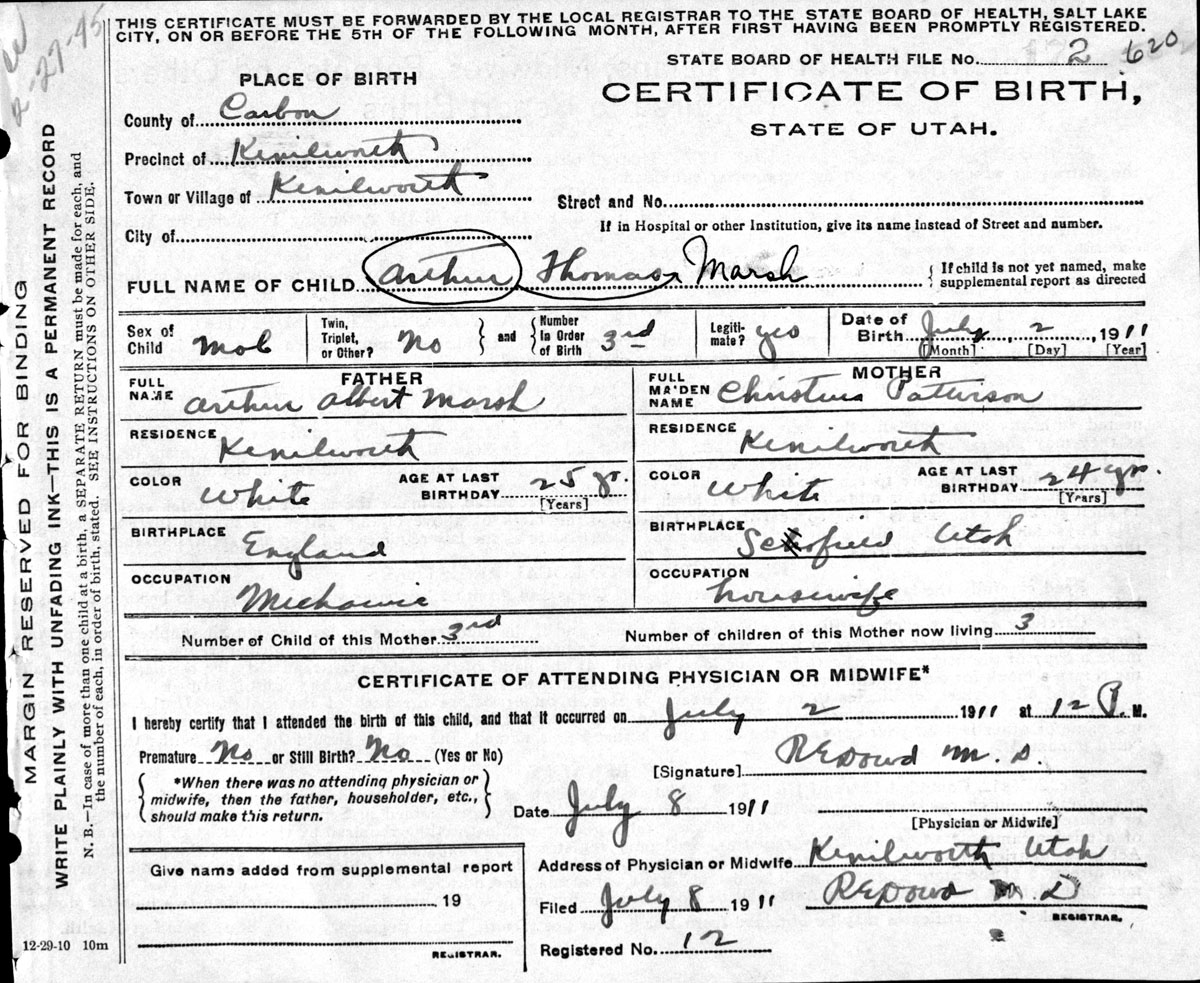 THIS CERTIFICATE MUST BE FORWARDED BY THE LOCAL REGISTRAR TO THE STATE BOARD OF HEALTH, SALT LAKE
CITY, ON OR BEFORE THE 5TH OF THE FOLLOWING MONTH, AFTER FIRST HAVING BEEN PROMPTLY REGISTERED.
STATE BOARD OF HEALTH FILE No. 2 620
PLACE OF BIRTH
CERTIFICATE OF BIRTH,
STATE OF UTAH.
County of Carbon
Precinct of Kenilworth
Town or Village of Kenilworth
Street and No.
City of
If in Hospital or other Institution, give its name instead of Street and number.
FULL NAME OF CHILD Arthur Thomas Marsh
{ If child is not yet named, make
supplemental report as directed
Sex of Child Mal
Twin, Triplet, or Other? No } and { Number in Order of Birth 3rd
Legitimate? yes
Date of Birth July 2, 1911
[Month] [Day] [Year]
FATHER
FULL NAME Arthur Albert Marsh
RESIDENCE Kenilworth
COLOR White AGE AT LAST BIRTHDAY 25 yr.
[Years]
BIRTHPLACE England
OCCUPATION Mechanic
MOTHER
FULL MAIDEN NAME Christina Patterson
RESIDENCE Kenilworth
COLOR White AGE AT LAST BIRTHDAY 24 yr.
[Years]
BIRTHPLACE Scofield Utah
OCCUPATION housewife
Number of Child of this Mother 3rd Number of children of this Mother now living 3
CERTIFICATE OF ATTENDING PHYSICIAN OR MIDWIFE*
I hereby certify that I attended the birth of this child, and that it occurred on July 2 1911 at 12 P. M.
Premature No or Still Birth? No (Yes or No)
[Signature] REDowd M. D.
{ *When there was no attending physician or
midwife, then the father, householder, etc.,
should make this return. }
Date July 8 1911
[Physician or Midwife]
Address of Physician or Midwife Kenilworth Utah
Give name added from supplemental report
19
REGISTRAR.
Filed July 8 1911 REDowd M. D
REGISTRAR.
Registered No. 12
12-29-10 10m
MARGIN RESERVED FOR BINDING
WRITE PLAINLY WITH UNFADING INK—THIS IS A PERMANENT RECORD
N. B.—In case of more than one child at a birth, a SEPARATE RETURN must be made for each, and
the number of each, in order of birth, stated. SEE INSTRUCTIONS ON OTHER SIDE.